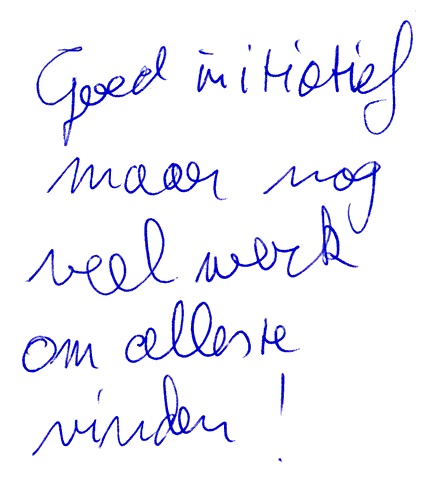 Goed initiatief
maar nog
veel werk
om alles te
vinden!